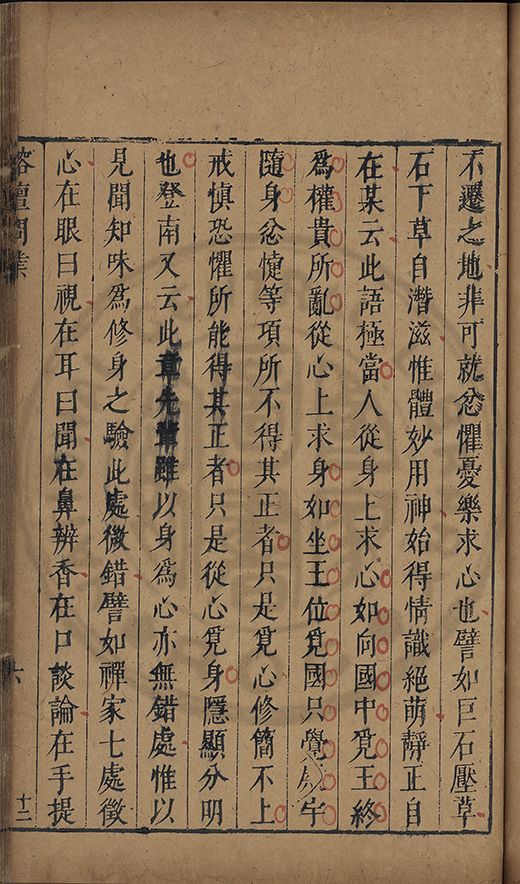 不遷之地非可就忿懼憂樂求心也譬如巨石壓草
石下草自潛滋惟體妙用神始得情識絕萌靜正自
在某云此語極當人從身上求心如向國中覓王終
為權貴所亂從心上求身如坐王位覓國只覺宇
隨身忿懥等項所不得其正者只是覓心修簡不上
戒慎恐懼所能得其正者只是從心覓身隱顯分明
也登南又云此章先輩雖以身為心亦無錯處惟以
見聞知味為修身之驗此處微錯譬如禪家七處徵
心在眼曰視在耳曰聞在鼻辨香在口談論在手提
榕壇問業
六
十二